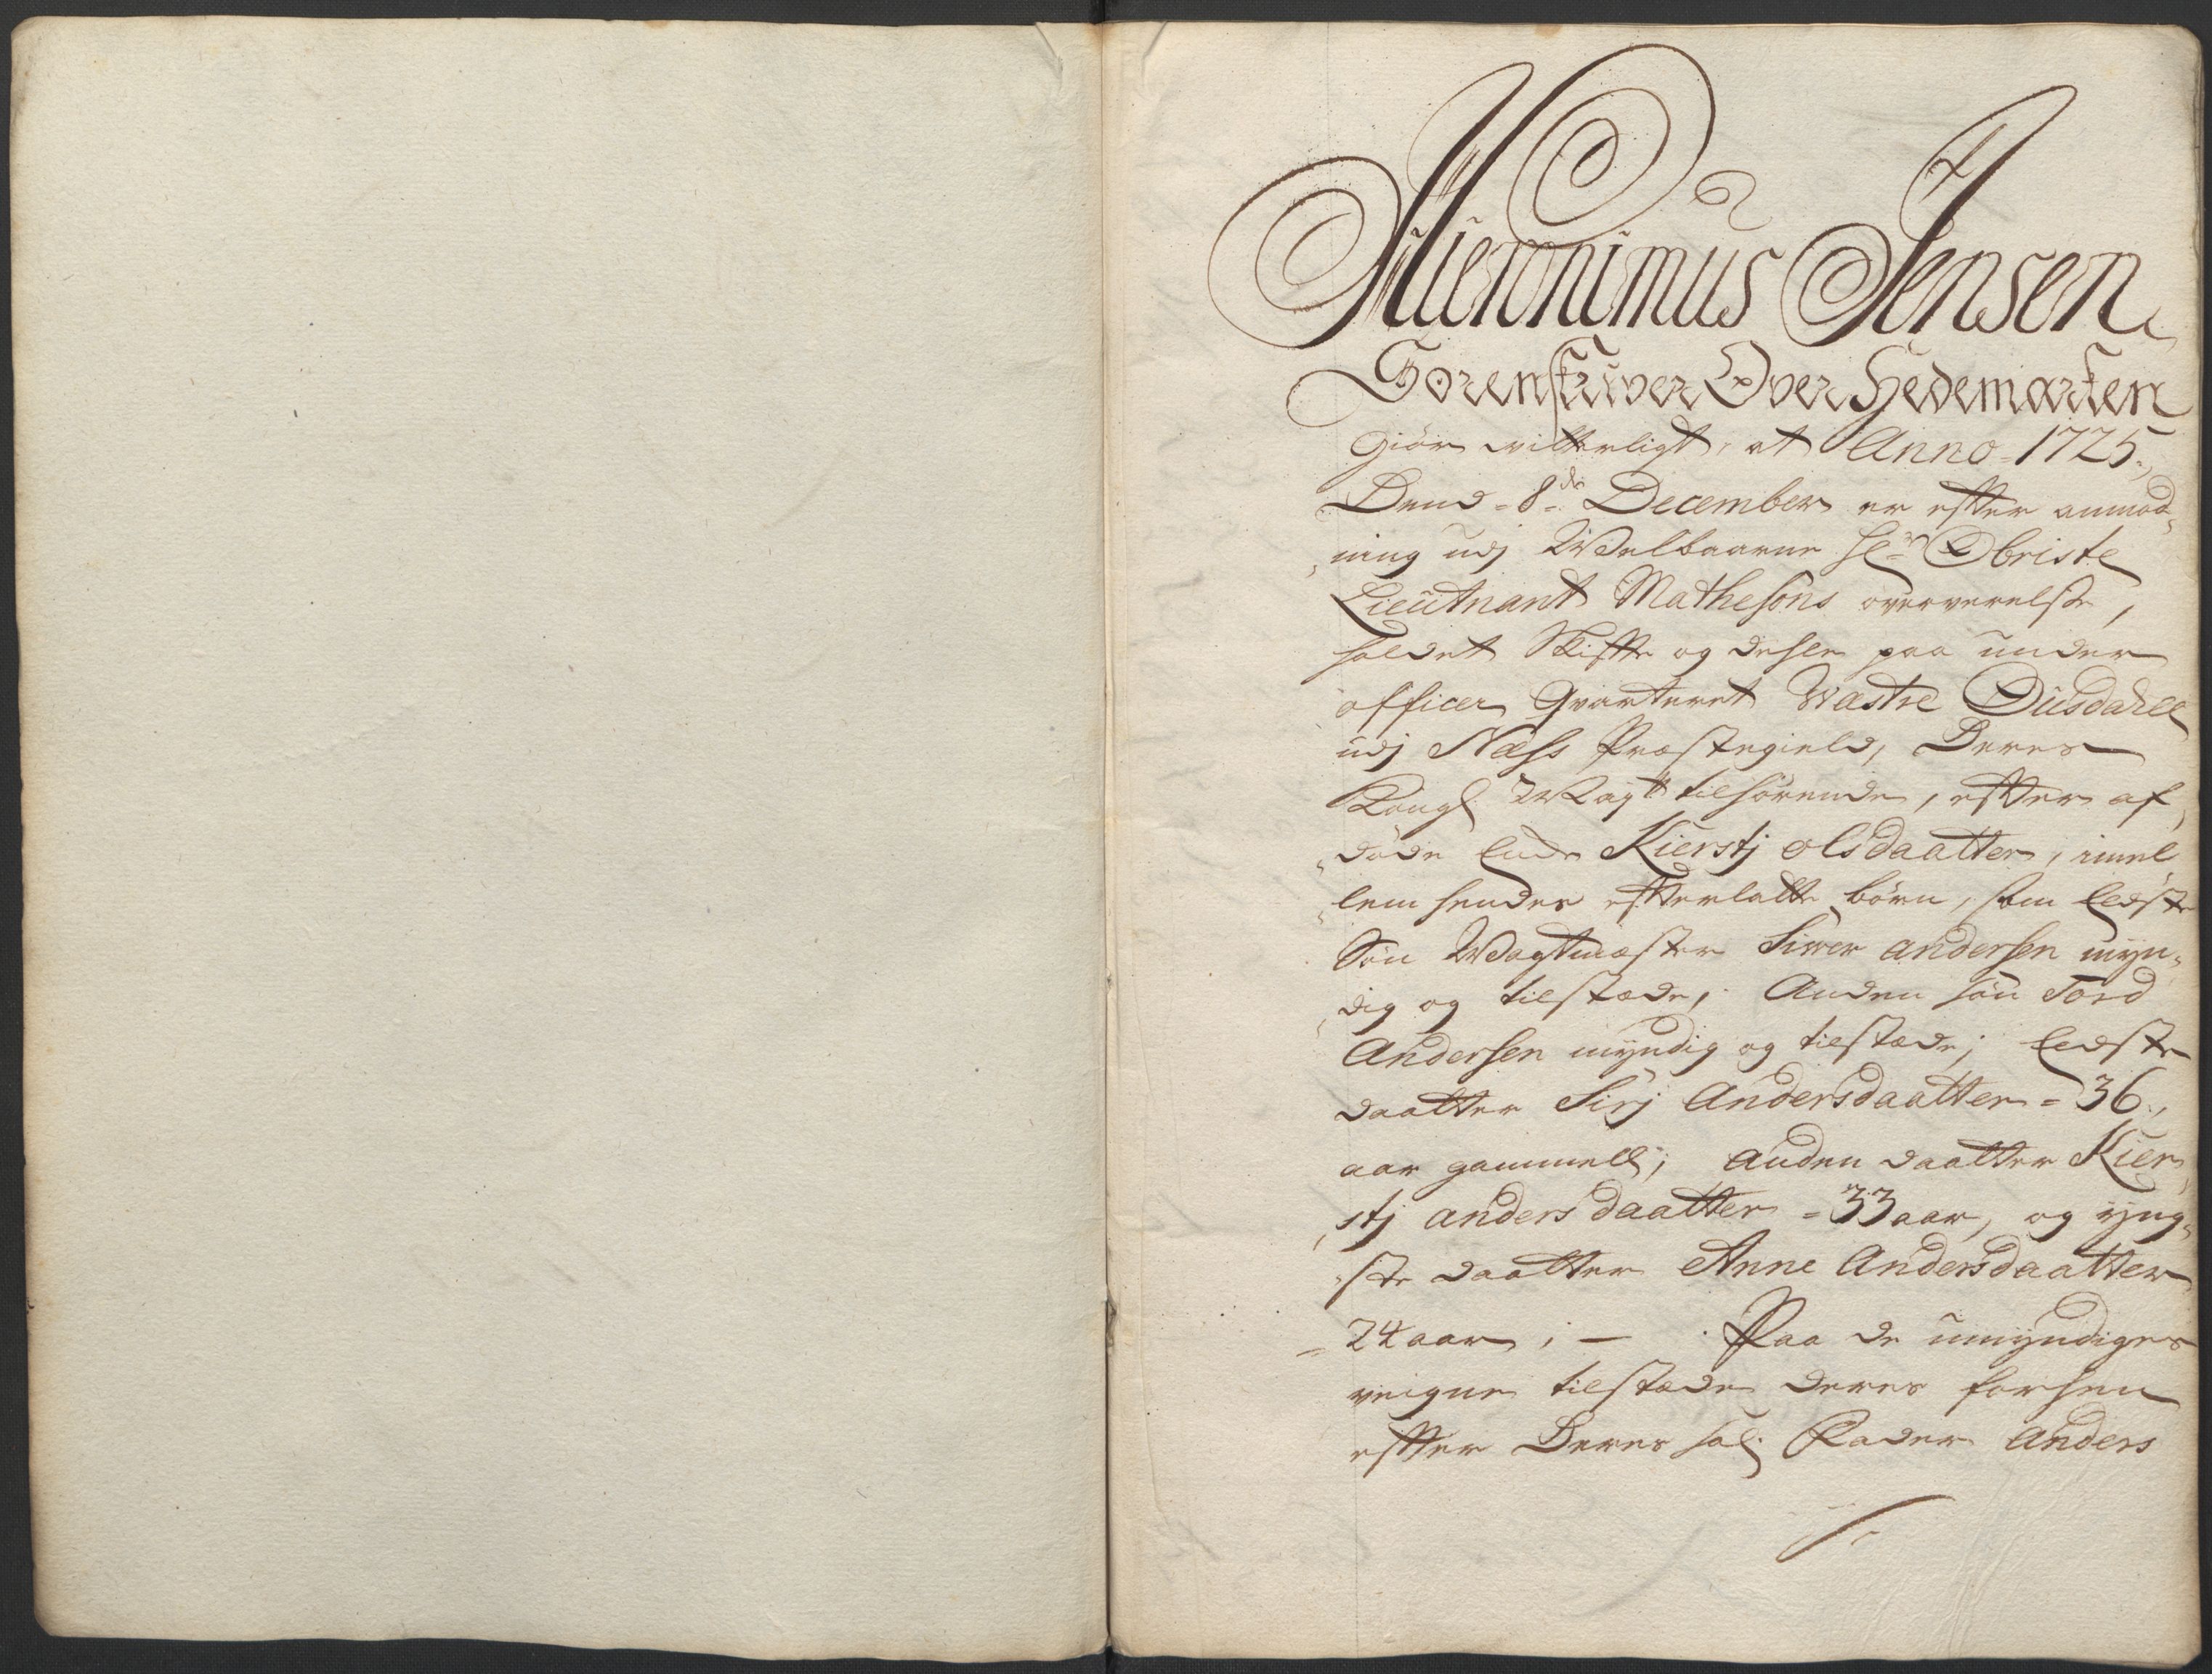 Hieronimus Jensen
Sorenskriver Over Hedemarken
Giør vitterligt, at Anno 1725.,
Dend = 8de December er effter anmod„
„ning udj Welbaarne Hr Obriste
Lieutnant Mathesons overværelse,
holdet Skiffte og deele paa under
officer Qvarteret Wæstre Dusdahll
udj Næss Præstegield, Deres
Kongl. Mayts tilhørende, effter af„
„døde Enke Kierstj olsdaatter, imel„
„lem hendes effterlatte børn, som Eldste
Søn Wagtmæster Siwer andersen myn„
„dig og tilstæde, Anden søn Tord
Andersen myndig og tilstæde; Eldste
daatter Sirj Andersdaatter = 36.,
aar gammell; anden daatter Kier„
„stj anders daatter = 33 aar, og yng„
„ste daatter Anne Andersdaatter
= 24 aar ; — Paa de umyndiges
veigne tilstæde deres forhen
effter Deres sal. Fader Anders